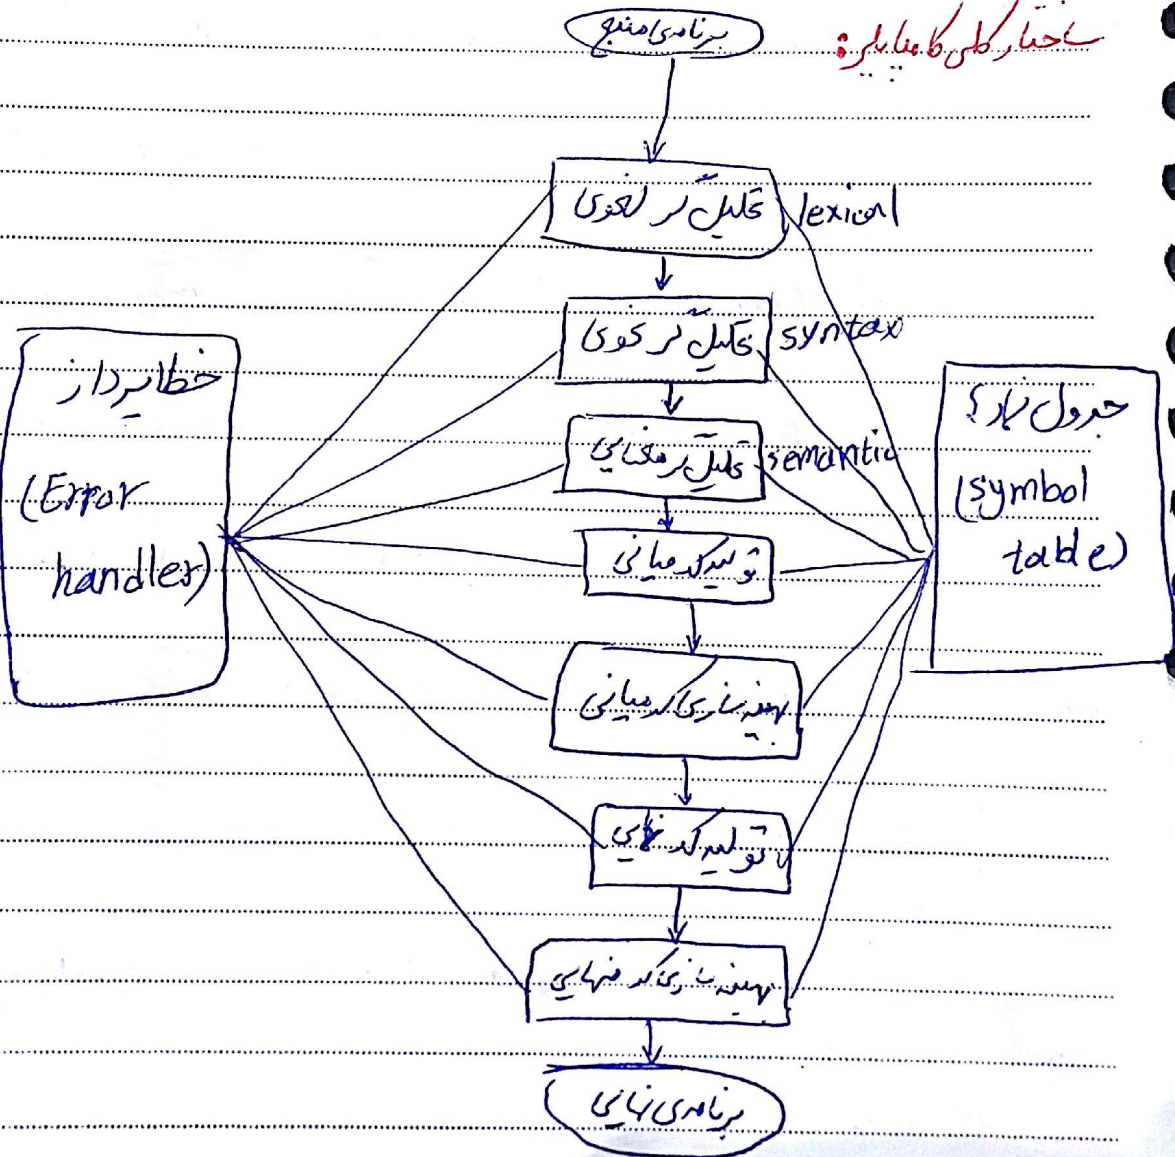 ساختار کلی کامپایلر:
برنامه‌ی منبع
تحلیل گر لغوی
lexical
تحلیل گر نحوی
syntax
تحلیل گر معنایی
semantic
تولید کد میانی
بهینه سازی کد میانی
تولید کد نهایی
بهینه سازی کد نهایی
برنامه‌ی نهایی
خطاپرداز
(Error
handler)
جدول نمادها
(symbol
table)